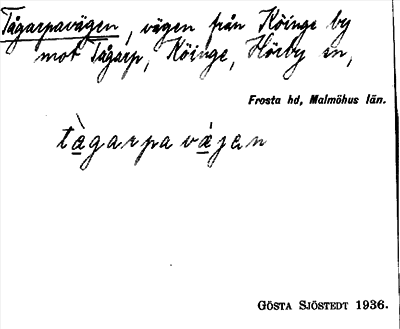 Tågarpavägen, vägen från Köinge by
mot Tågarp, Köinge, Hörby sn,
Frosta hd, Malmöhus län.
tàgarpavájan
GÖSTA SJÖSTEDT 1936.